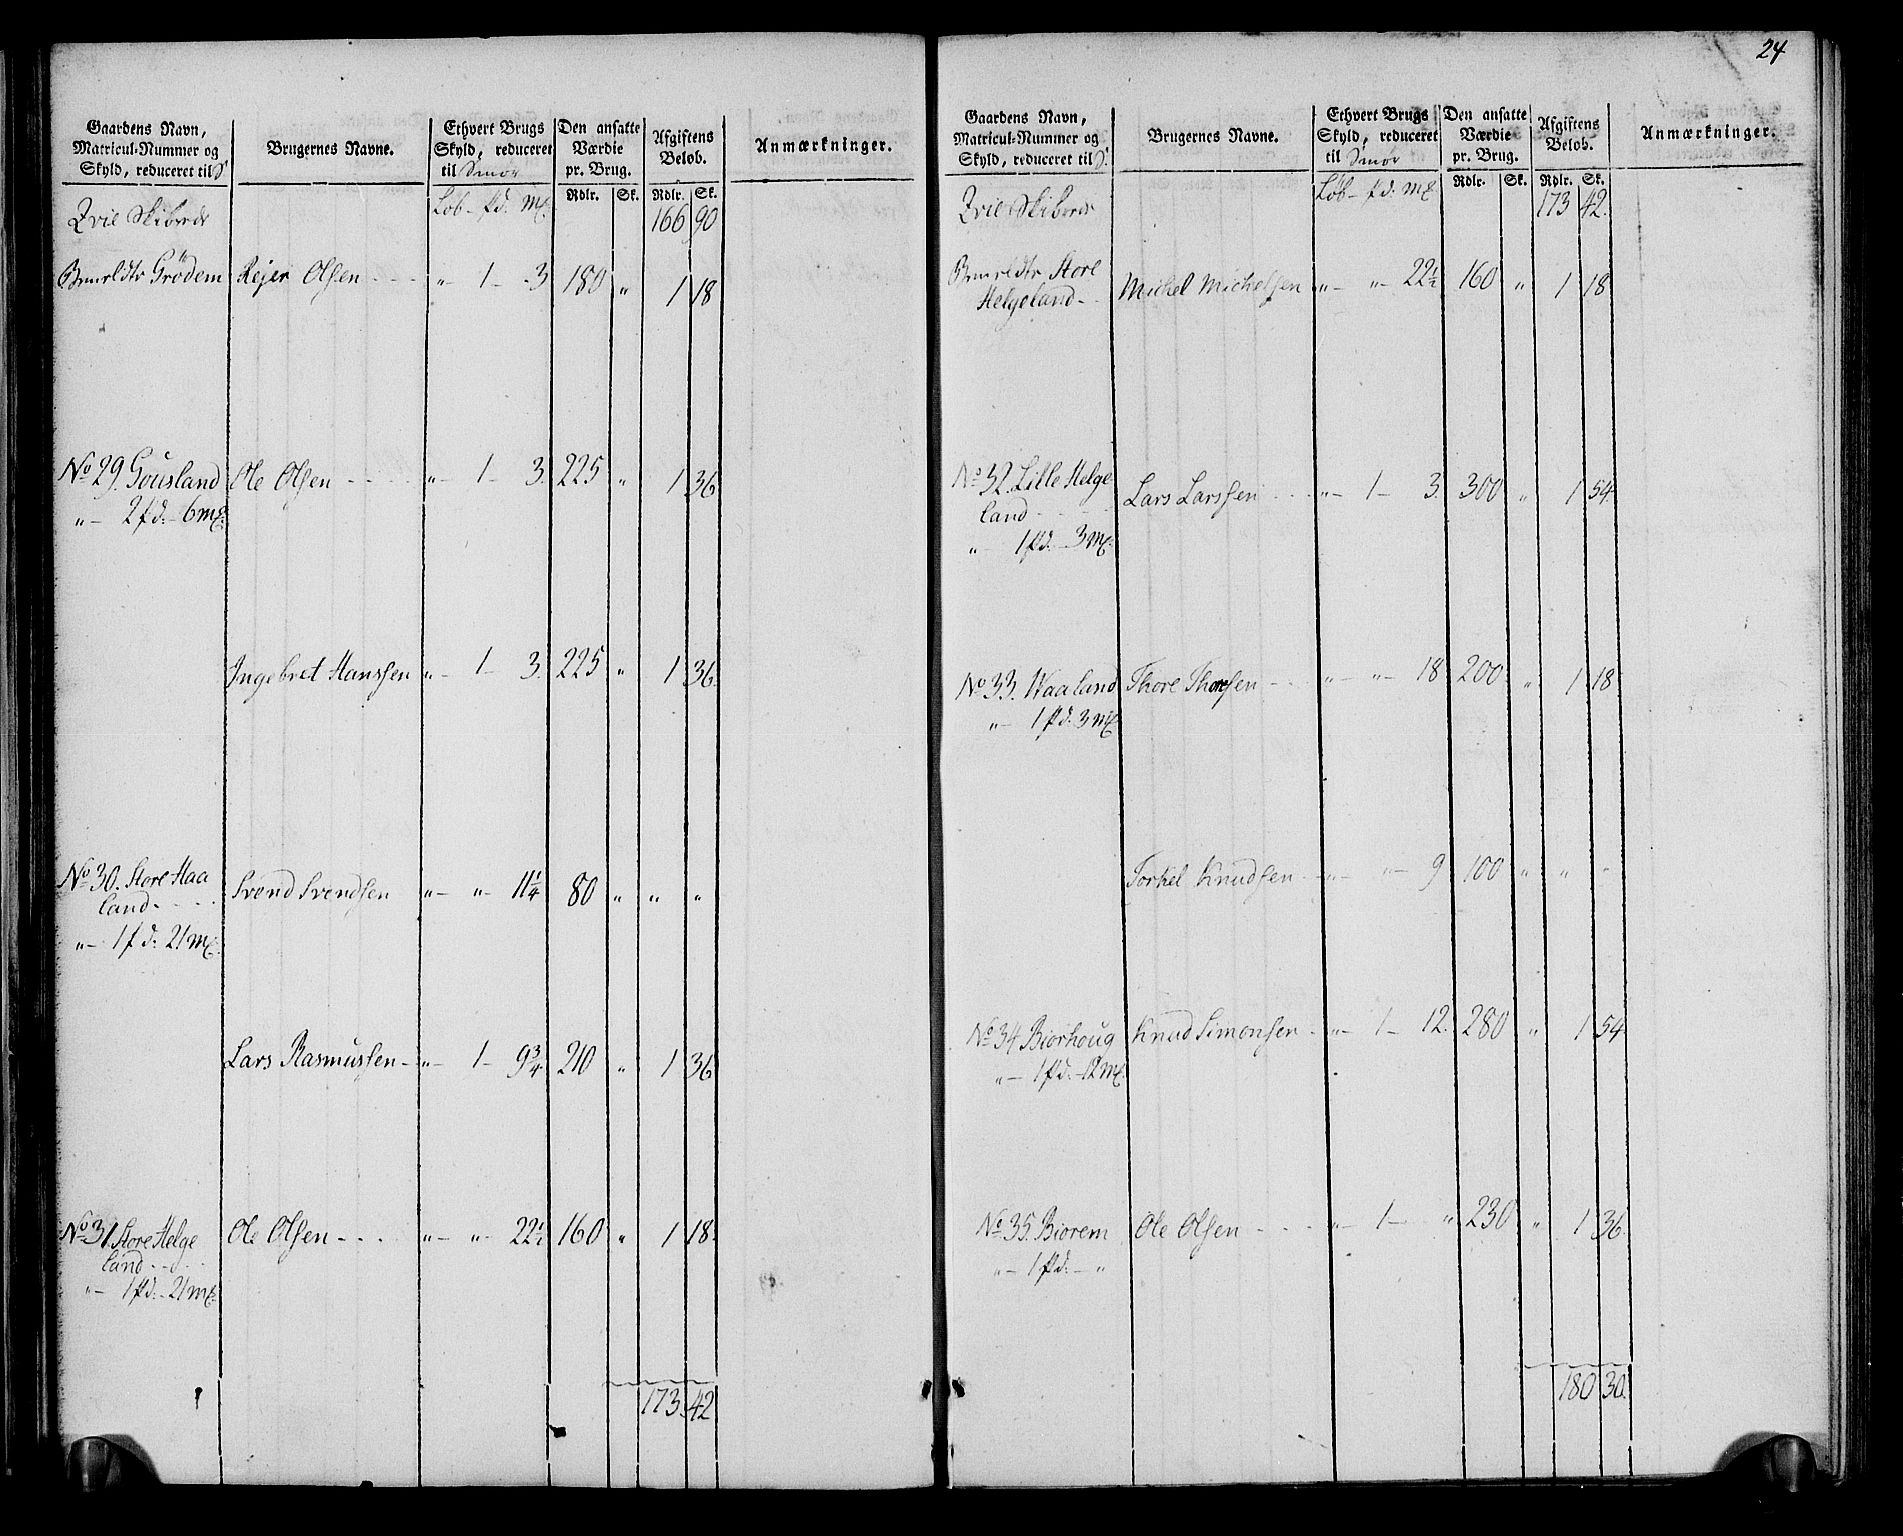 24
Gaardens Navn, Matricul-Nummer og Skyld, reduceret til S | Brugernes Navne. | Ethvert Brugs Skyld, reduceret til Smør | Den ansatte Værdie pr. Brug. | Afgiftens Beløb. | Anmærkninger.
Løb - pd. - mk | Rdlr. | Sk. | Rdlr. | Sk.
Skibrede 166 90
Grödem Rejer Olsen - - - „ - 1 - 3 180 „ 1 18
No 29. Gousland Ole Olsen - - - - „ - 1 - 3. 225 „ 1 36
„ - 2 pd: - 6 mk:
Ingebret Hanssen „ - 1 - 3. 225 „ 1 36.
No 30. Store Haa Svend Svendsen „ - „ - 11 1/4 80 „ „ „
land - - - -
„ - 1 pd: 21 mk:
Lars Rasmussen - „ - 1 - 9 3/4 210 „ 1 36
No 31. Store Helge Ole Olsen - - - „ - „ - 22 1/2 160 „ 1 18.
land - - - -
„ - 1 pd: - 21 mk:
173. 42
Gaardens Navn, Matricul-Nummer og Skyld, reduceret til S. | Brugernes Navne. | Ethvert Brugs Skyld, reduceret til Smør | Den ansatte Værdie pr. Brug. | Afgiftens Beløb. | Anmærkninger.
Løb - pd. mk | Rdlr. | Sk. | Rdlr. | Sk.
Skibrede 173 42.
Store
Helgeland - - Michel Michelsen „ - „ - 22 1/2 160 „ 1 18
No 32. Lille Helge Lars Larssen - - - „ - 1 - 3. 300 „ 1 54
land - - - -
„ - 1 pd. - 3 mk:
No 33. Waaland Thore Thorsen - - - „ - „ - 18 200 „ 1 18
„ - 1 pd. 3 mk
Torkel Knudsen - „ - „ - 9 100 „ „ „
No 34 Biorhoug Knud Simonsen - „ - 1 - 12. 280 „ 1 54
„ - 1 pd. - 12 mk.
No 35. Biorem Ole Olsen - - - - „ - 1 - „ 230 „ 1 36.
„ - 1 pd: - „
180 30.